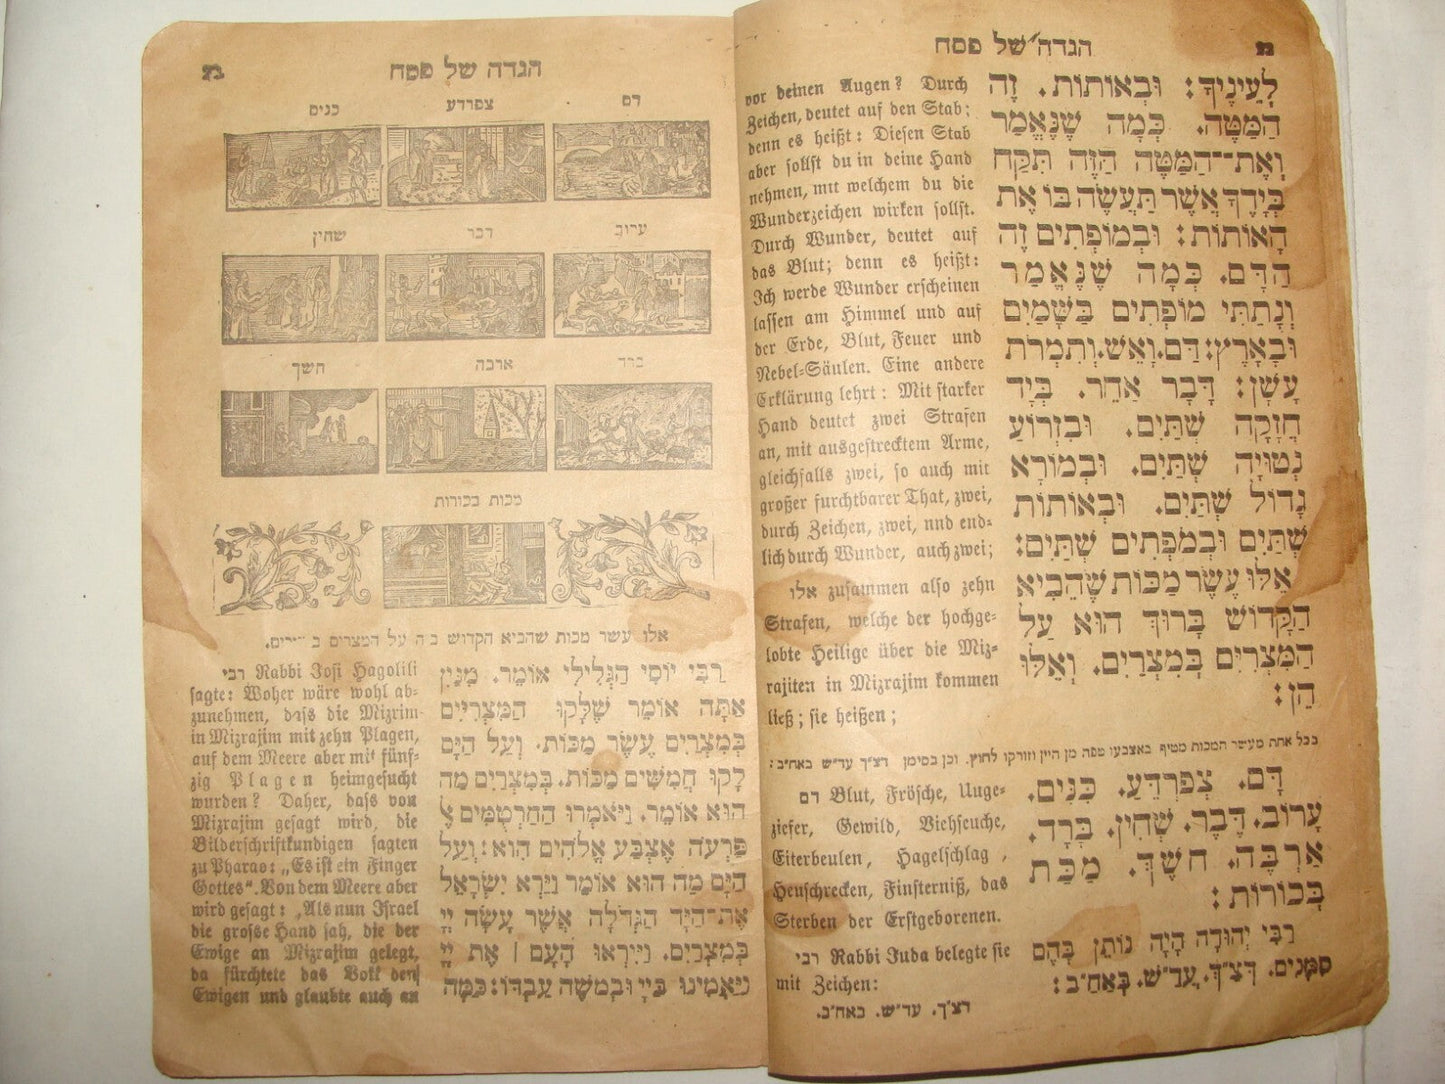 הגדה של פסח
לְעֵינֶיךָ: וּבְאוֹתוֹת. זֶה
הַמַּטֶּה. כְּמָה שֶׁנֶּאֱמַר
וְאֶת־הַמַּטֶּה הַזֶּה תִּקַּח
בְּיָדֶךָ אֲשֶׁר תַּעֲשֶׂה בּוֹ אֶת
הָאוֹתוֹת: וּבְמוֹפְתִים זֶה
הַדָּם. כְּמָה שֶׁנֶּאֱמַר
וְנָתַתִּי מוֹפְתִים בַּשָּׁמַיִם
וּבָאָרֶץ: דָּם. וָאֵשׁ. וְתִמְרֹת
עָשָׁן: דָּבָר אַחֵר. בְּיָד
חֲזָקָה שְׁתַּיִם. וּבִזְרוֹעַ
נְטוּיָה שְׁתַּיִם. וּבְמוֹרָא
גָּדוֹל שְׁתַּיִם. וּבְאוֹתוֹת
שְׁתַּיִם וּבְמֹפְתִים שְׁתַּיִם:
אֵלּוּ עֶשֶׂר מַכּוֹת שֶׁהֵבִיא
הַקָּדוֹשׁ בָּרוּךְ הוּא עַל
הַמִּצְרִים בְּמִצְרַיִם. וְאֵלּוּ
הֵן:
vor deinen Augen? Durch
Zeichen, deutet auf den Stab;
denn es heißt: Diesen Stab
aber sollst du in deine Hand
nehmen, mit welchem du die
Wunderzeichen wirken sollst.
Durch Wunder, deutet auf
das Blut; denn es heißt:
Ich werde Wunder erscheinen
lassen am Himmel und auf
der Erde, Blut, Feuer und
Nebel-Säulen. Eine andere
Erklärung lehrt: Mit starker
Hand deutet zwei Strafen
an, mit ausgestrecktem Arme,
gleichfalls zwei, so auch mit
großer furchtbarer That, zwei,
durch Zeichen, zwei, nnd end-
lich durch Wunder, auch zwei;
אלו zusammen also zehn
Strafen, welche der hochge-
lobte Heilige über die Miz-
rajiten in Mizrajim kommen
ließ; sie heißen;
בכל אחת מעשר המכות מטיף באצבעו טפה מן היין וזורקו לחוץ. וכן בסימן דצ"ך עד"ש באח"ב:
דָּם. צְפַרְדֵּעַ. כִּנִּים.
עָרוֹב. דֶּבֶר. שְׁחִין. בָּרָד.
אַרְבֶּה. חֹשֶׁךְ. מַכַּת
בְּכוֹרוֹת:
רַבִּי יְהוּדָה הָיָה נוֹתֵן בָּהֶם
סִמָּנִים. דְּצַ"ךְ. עֲדַ"שׁ. בְּאַחַ"ב:
דם Blut, Frösche, Unge-
ziefer, Gewild, Viehseuche,
Eiterbeulen, Hagelschlag,
Heuschrecken, Finsterniß, das
Sterben der Erstgeborenen.
רבי Rabbi Juda belegte sie
mit Zeichen:
דצ"ך. עד"ש. באח"ב.
הגדה של פסח
דם צפרדע כנים
ערוב דבר שחין
ברד ארבה חשך
מכות בכורות
אלו עשר מכות שהביא הקדוש ב ה על המצרים ב
רַבִּי יוֹסֵי הַגְּלִילִי אוֹמֵר. מִנַּיִן
אַתָּה אוֹמֵר שֶׁלָּקוּ הַמִּצְרִיִּים
בְּמִצְרַיִם עֶשֶׂר מַכּוֹת. וְעַל הַיָּם
לָקוּ חֲמִשִּׁים מַכּוֹת. בְּמִצְרַיִם מַה
הוּא אוֹמֵר. וַיֹּאמְרוּ הַחַרְטֻמִּים אֶ
פַּרְעֹה אֶצְבַּע אֱלֹהִים הִוא: וְעַל
הַיָּם מַה הוּא אוֹמֵר וַיַּרְא יִשְׂרָאֵל
אֶת־הַיָּד הַגְּדֹלָה אֲשֶׁר עָשָׂה יְיָ
בְּמִצְרַיִם. וַיִּירְאוּ הָעָם | אֶת יְיָ
וַיַּאֲמִינוּ בַּיְיָ וּבְמֹשֶׁה עַבְדּוֹ: כַּמָּה
רבי Rabbi Josi Hagolili
sagte: Woher wäre wohl ab-
zunehmen, dass die Mizrim
in Mizrajim mit zehn Plagen,
auf dem Meere aber mit fünf-
zig Plagen heimgesucht
wurden? Daher, dass von
Mizrajim gesagt wird, die
Bilderschriftkundigen sagten
zu Pharao: „Es ist ein Finger
Gottes". Von dem Meere aber
wird gesagt: „Als nun Israel
die grosse Hand sah, die der
Ewige an Mizrajim gelegt,
da fürchtete das Volk den
Ewigen und glaubte auch an